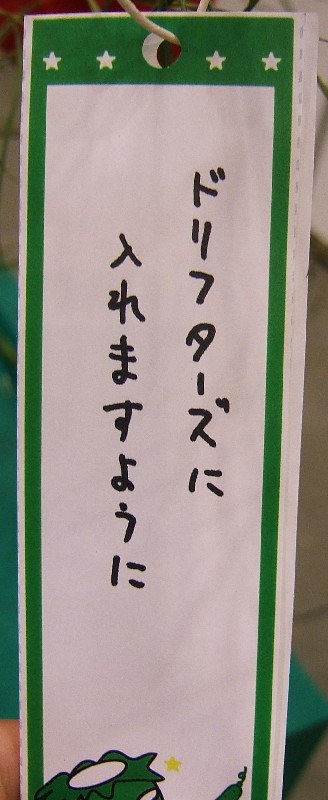 ドリフターズに
入れますように